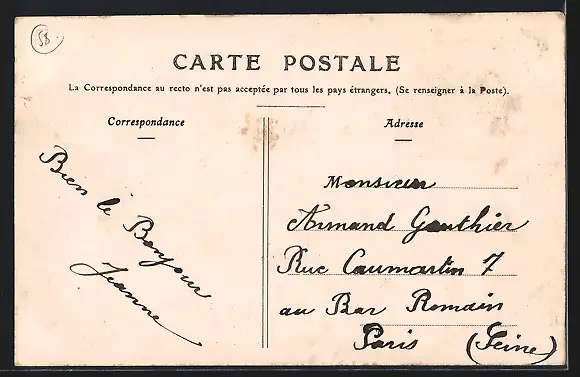 58
CARTE POSTALE
La Correspondance au recto n'est pas acceptée par tous les pays étrangers. (Se renseigner à la Poste).
Correspondance
Bien le Bonjour
Jeanne
Adresse
Monsieur
Armand Gauthier
Rue Caumartin 7
au Bar Romain
Paris (Seine)